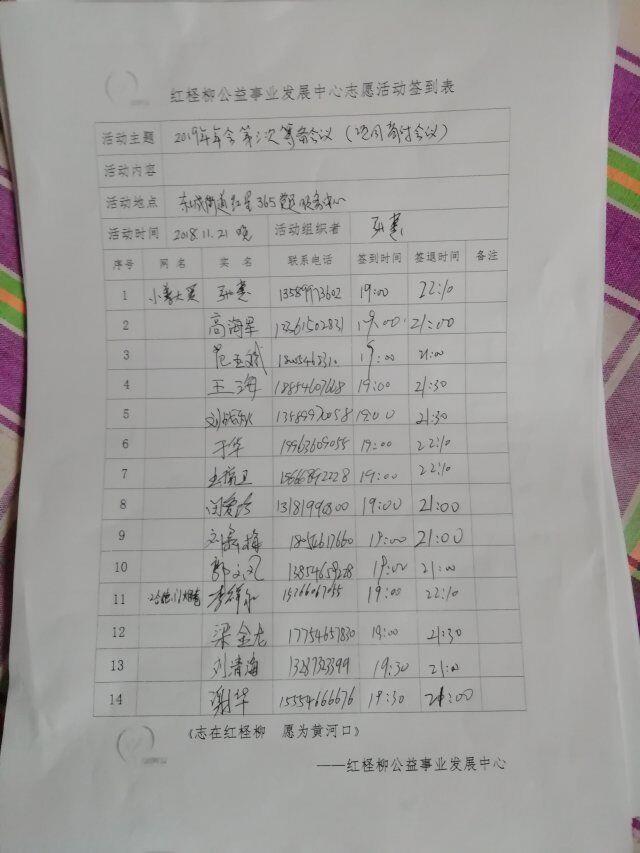 红柽柳公益事业发展中心志愿活动签到表
活动主题 2019年年会第二次筹备会议
活动内容
活动地点 东城街道红星365党员服务中心
活动时间 2018.11.21 晚 活动组织者 孙惠
序号 网名 实名 联系电话 签到时间 签退时间 备注
1 孙惠 13589973602 19:00 22:10
2 高海军 13361502831 19:00 21:00
3 19:00 21:00
4 王海 18854607668 19:00 21:30
5 13589970058 19:00 21:30
6 于华 19963609055 19:00 22:10
7 15666892228 19:00 22:10
8 19:00 21:00
9 18054617660 19:00 21:00
10 郭文凤 13854658228 19:00 21:00
11 15266067055 19:00 22:10
12 梁金龙 17754657830 19:00 21:30
13 刘清海 13287323399 19:30 21:00
14 谢华 15554666676 19:30 21:00
《志在红柽柳 愿为黄河口》
——红柽柳公益事业发展中心